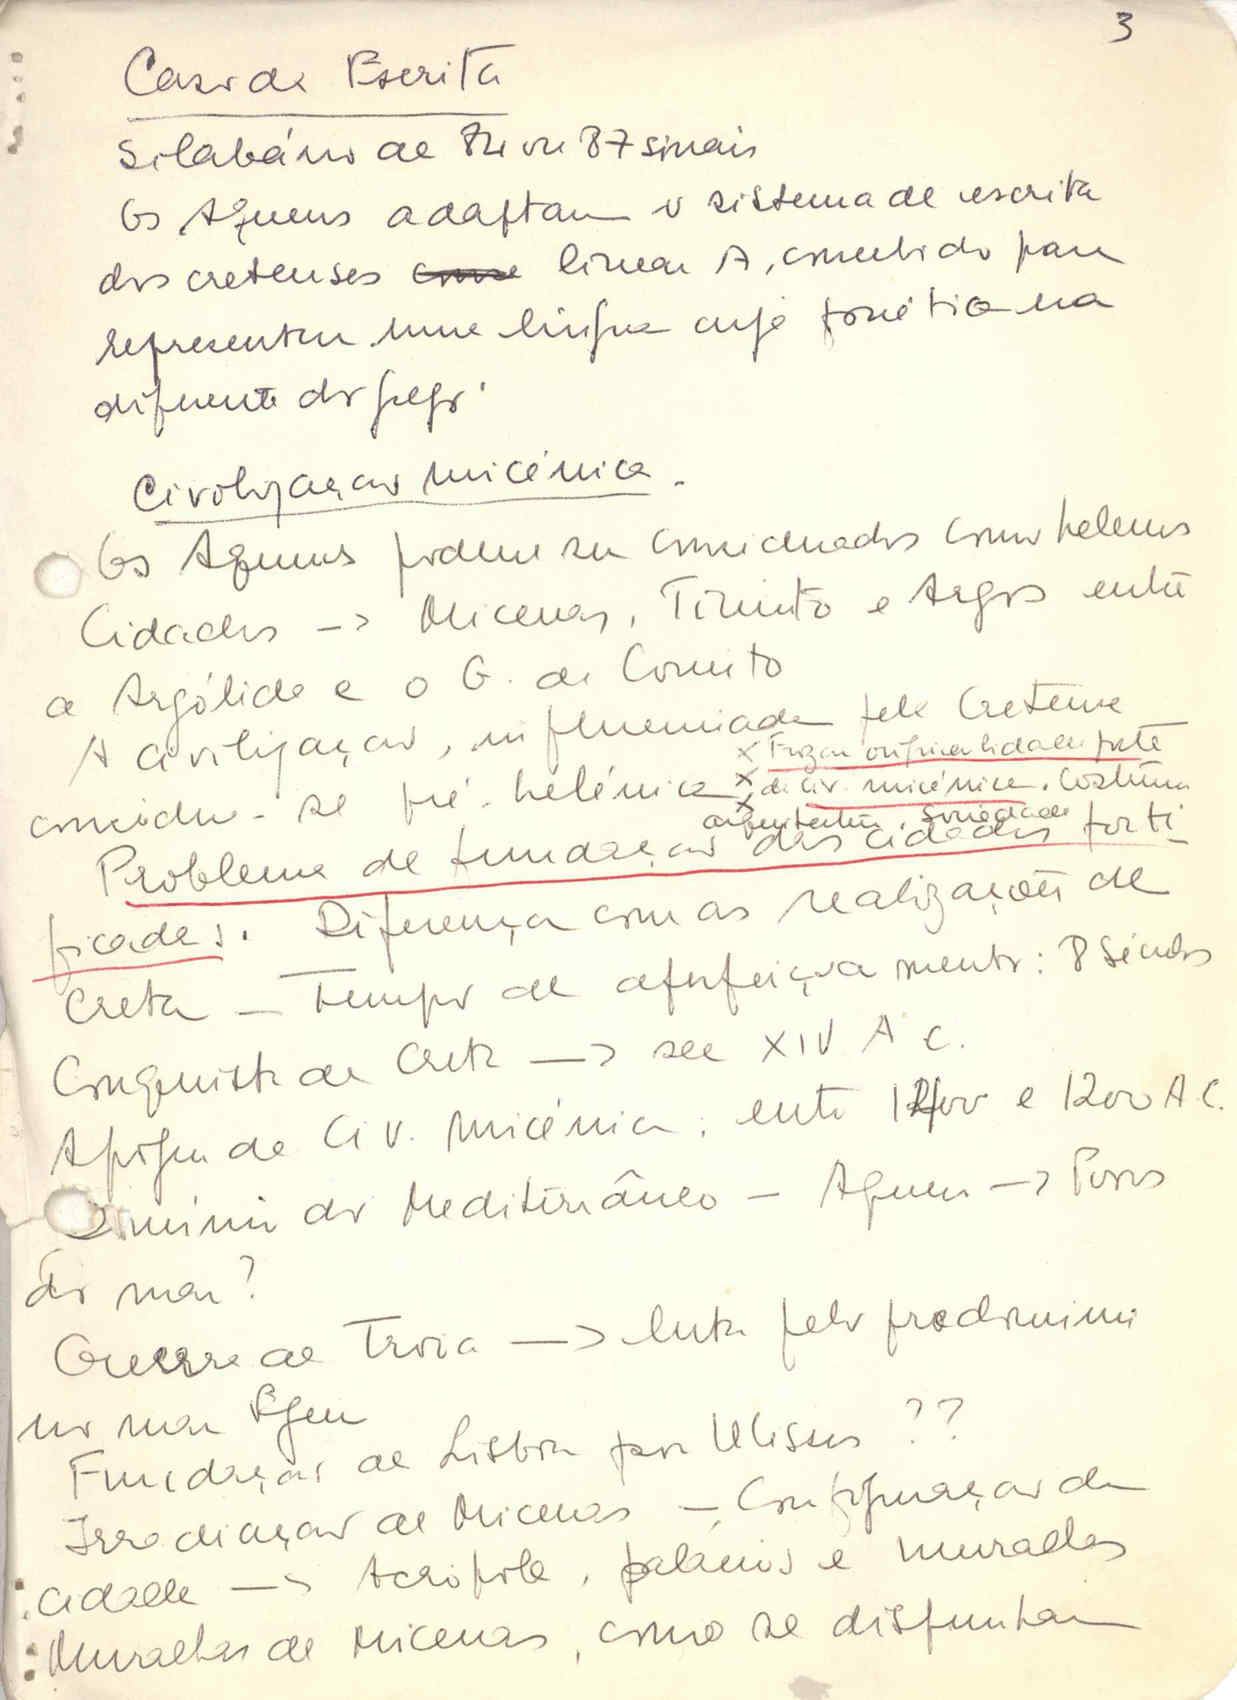 3
Caso da Escrita
Silabário de 82 ou 87 sinais
Os Aqueus adaptam o sistema de escrita
dos cretenses linear A, concebido para
representar uma língua cuja fonética era
diferente do grego.
Civilização micénica.
Os Aqueus podem ser considerados como helenos
Cidades -> Micenas, Tirinto e Argos entre
a Argólida e o G. de Corinto
A civilização, influenciada pela Cretense
considera-se pré-helénica
x Frizar originalidade
x da civ. micénica. Costumes
x arquitectura, sociedade
Problema de fundação das cidades forti-
ficadas. Diferença com as realizações de
Creta - Tempo de aperfeiçoamento: 8 séculos
Conquista de Creta -> sec XIV A C.
Apogeu da Civ. Micénica: entre 1400 e 1200 A C.
Domínio do Mediterrâneo - Aqueus -> Povos
do mar?
Guerra de Troia -> luta pelo predomínio
no mar Egeu
Fundação de Lisboa por Ulisses ??
Irradiação de Micenas - Configuração da
cidade -> Acrópole, palácios e muralhas
Muralhas de Micenas, como se dispunham